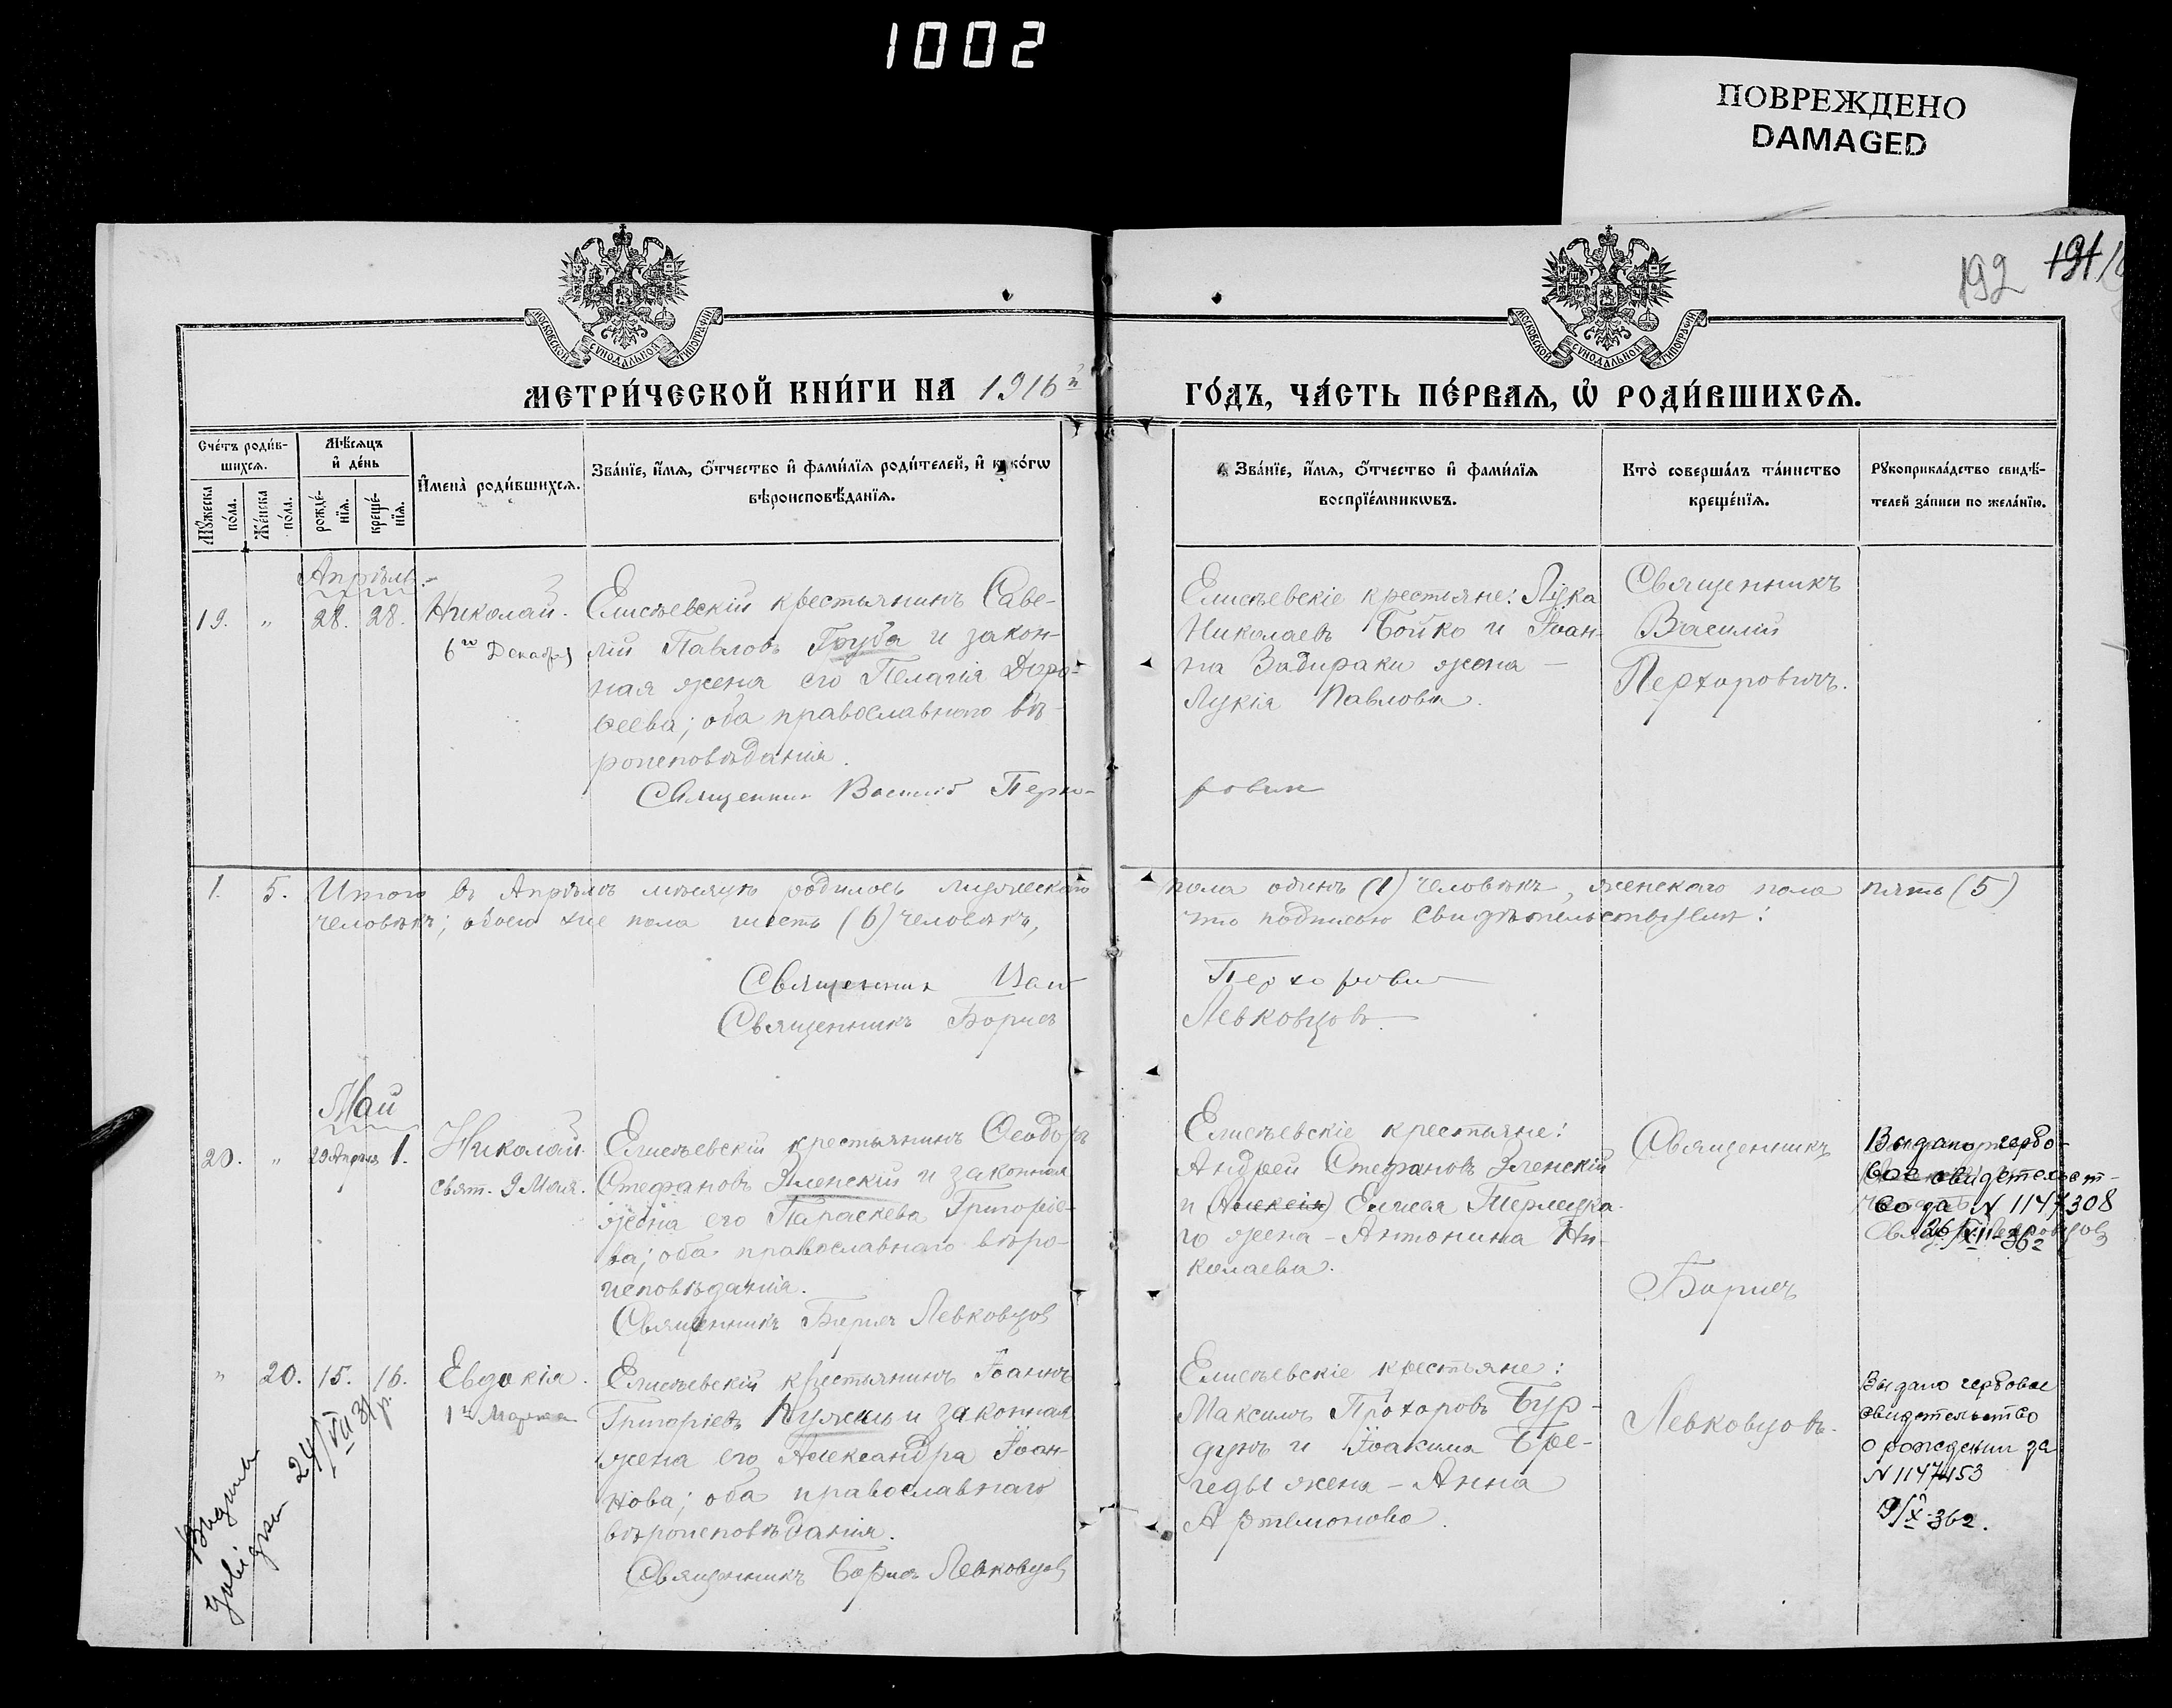 1002
ПОВРЕЖДЕНО
DAMAGED
192 191
МОСКОВСКОЙ СѴНОДАЛЬНОЙ ТИПОГРАФІИ
МОСКОВСКОЙ СѴНОДАЛЬНОЙ ТИПОГРАФІИ
МЕТРИ́ЧЕСКОЙ КНИ́ГИ НА 1916й
ГО́ДЪ, ЧА́СТЬ ПЕ́РВАѦ, Ѽ РОДИ́ВШИХСѦ.
Сче́тъ роди́в-
шихсѧ.
Мѣ́сѧцъ
и҆ де́нь
Мꙋ́жеска
по́ла.
Же́нска
по́ла.
рожде́-
нїѧ.
креще́-
нїѧ.
И҆мена̀ роди́вшихсѧ.
Зва́нїе, и҆́мѧ, ѻ҆́тчество и҆ фами́лїѧ роди́телей, и҆ ко́гѡ
вѣроисповѣ́данїѧ.
Зва́нїе, и҆́мѧ, ѻ҆́тчество и҆ фами́лїѧ
воспрїе́мникѡвъ.
Кто̀ соверша́лъ та́инство
креще́нїѧ.
Рꙋкоприкла́дство свидѣ́-
телей за́писи по жела́нїю.
Апрѣль.
19. " 28. 28. Николай.
6го Декабря
Елисѣевскій крестьянинъ Саве-
лій Павловъ Груба и закон-
ная жена его Пелагія Доро-
ѳеева; оба православнаго вѣ-
роисповѣданія.
Священник Василій Перхо-
рович
Елисѣевскіе крестьяне: Лука
Николаевъ Бойко и Іоан-
на Задираки жена –
Лукія Павлова.
Священникъ
Василій
Перхоровичъ.
1. 5. Итого въ Апрѣлѣ мѣсяцѣ родилось мужескаго пола одинъ (1) человѣкъ, женскаго пола пять (5)
человѣкъ; обоего же пола шесть (6) человѣкъ, что подписью свидѣтельствуемъ:
Священник Вас Перхорович
Священникъ Борисъ Левковцовъ.
Май
20. " 29 Апрѣля 1. Николай.
Свят. 9 Мая.
Елисѣевскій крестьянинъ Ѳеодоръ
Стефановъ Зленскій и законная
жена его Параскева Григоріе-
ва; оба православнаго вѣро-
исповѣданія.
Священникъ Борисъ Левковцов
Елисѣевскіе крестьяне:
Андрей Стефановъ Зленскій
и (Алексія) Елисея Терлецка-
го жена – Антонина Ни-
колаева.
Священникъ
Борисъ
Выдано гербо-
вое свидетельст-
во за N 1147308
26/XII 36г
" 20. 15. 16. Евдокія.
1го Марта
Елисѣевскій крестьянинъ Іоаннъ
Григоріевъ и законная
жена его Александра Іоан-
нова; оба православнаго
вѣроисповѣданія.
Священникъ Борисъ Левковцов
Елисѣевскіе крестьяне:
Максимъ Прохоровъ Бур-
дунъ и Іоакима Бре-
геды жена – Анна
Артемонова.
Левковцовъ.
Выдано гербовое
свидетельство
о рождении за
N 1147453
9/X-36г.
24/VII 31 р.